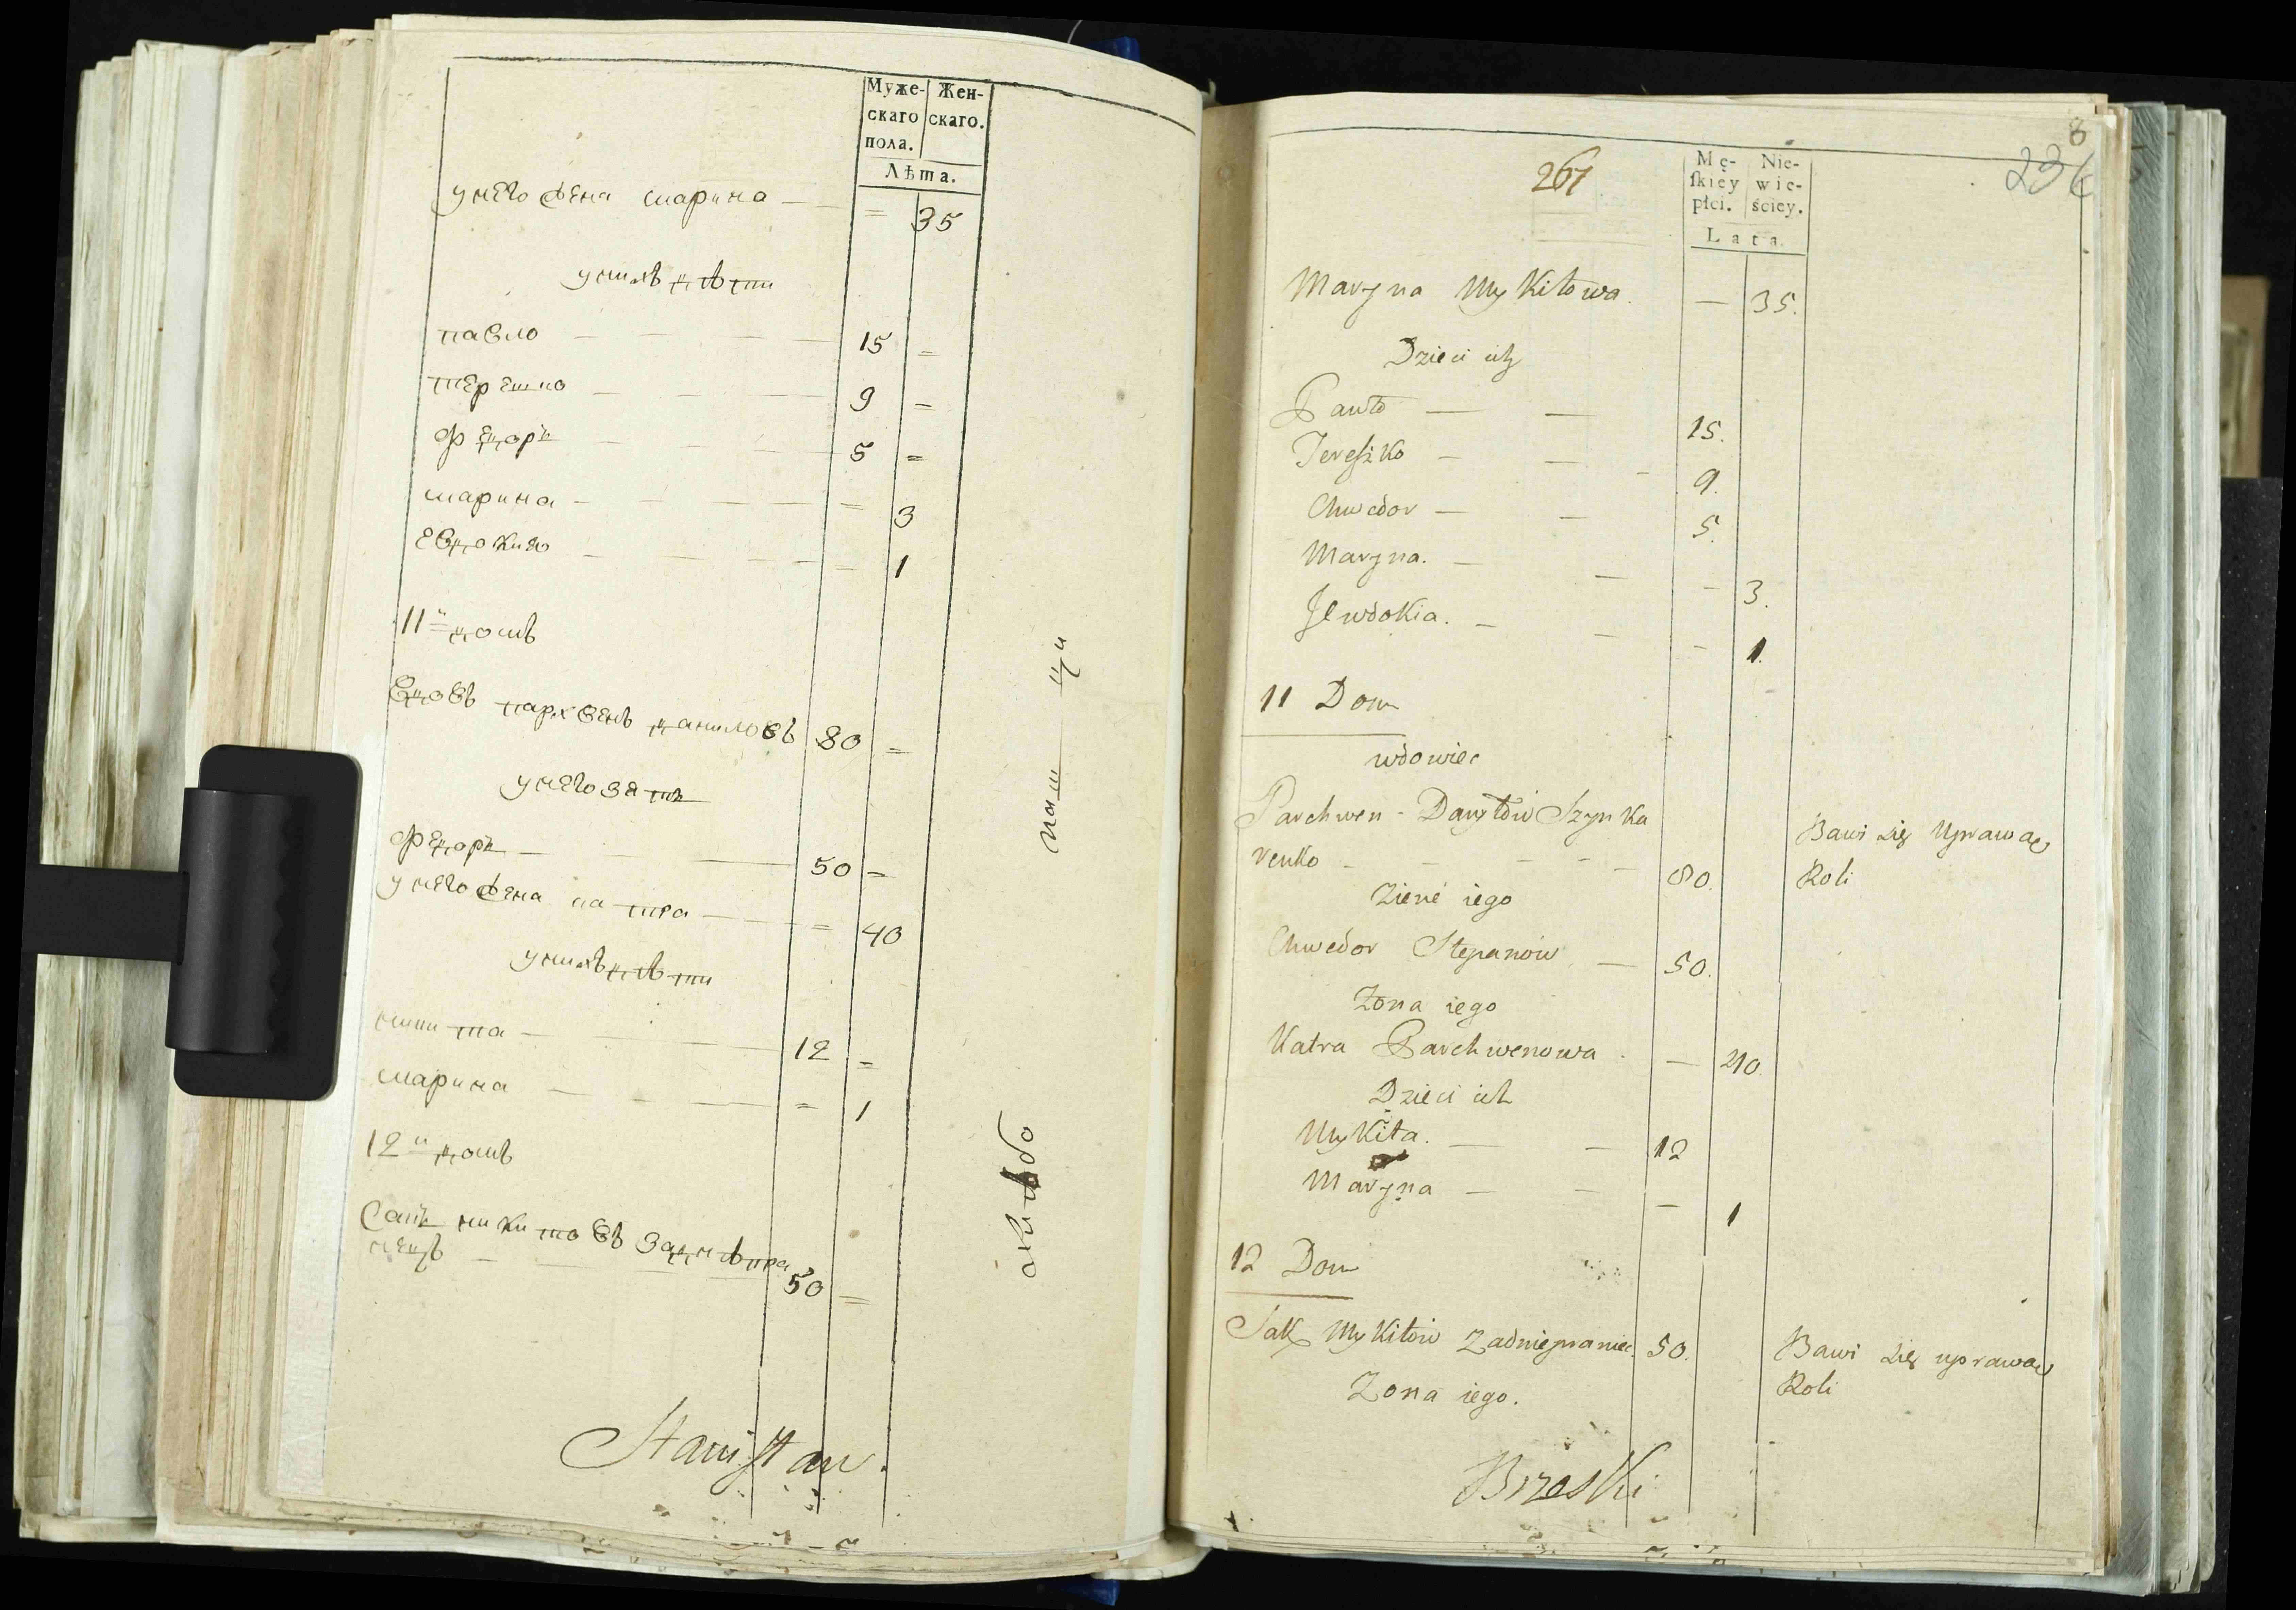 Муже-
скаго
пола.
Жен-
скаго.
Лѣта.
у него жена марина — = 35
у нихъ дѣти
павло — 15 =
терешко — 9 =
федоръ — 5 =
марина — = 3
евдокия — = 1
11й домъ
вдовъ пархвенъ даниловъ 80 =
у него зять
федоръ — 50 =
у него жена катра — = 40
у нихъ дѣти
никита — 12 =
марина — = 1
12й домъ
Сакъ никитовъ заднѣпра
нецъ — 50 =
Stanisław
8
236
267
Mę-
ſkiey
płci.
Nie-
wie-
ściey.
Lata.
Maryna Mykitowa. — 35.
Dzieci ich
Pawło — 15.
Tereſzko — 9.
Chwedor — 5.
Maryna. — 3.
Jewdokia. — 1.
11 Dom
wdowiec
Parchwen Daniłów Szynka
renko — 80. Bawi się Uprawą
Roli
Zięć iego
Chwedor Stepanów — 50.
Zona iego
Katra Parchwenowa — 40.
Dzieci ich
Mykita. — 12
Maryna — 1
12 Dom
Sak Mykitów Zadniepraniec. 50. Bawi się uprawą
Roli
Zona iego.
Brzeski